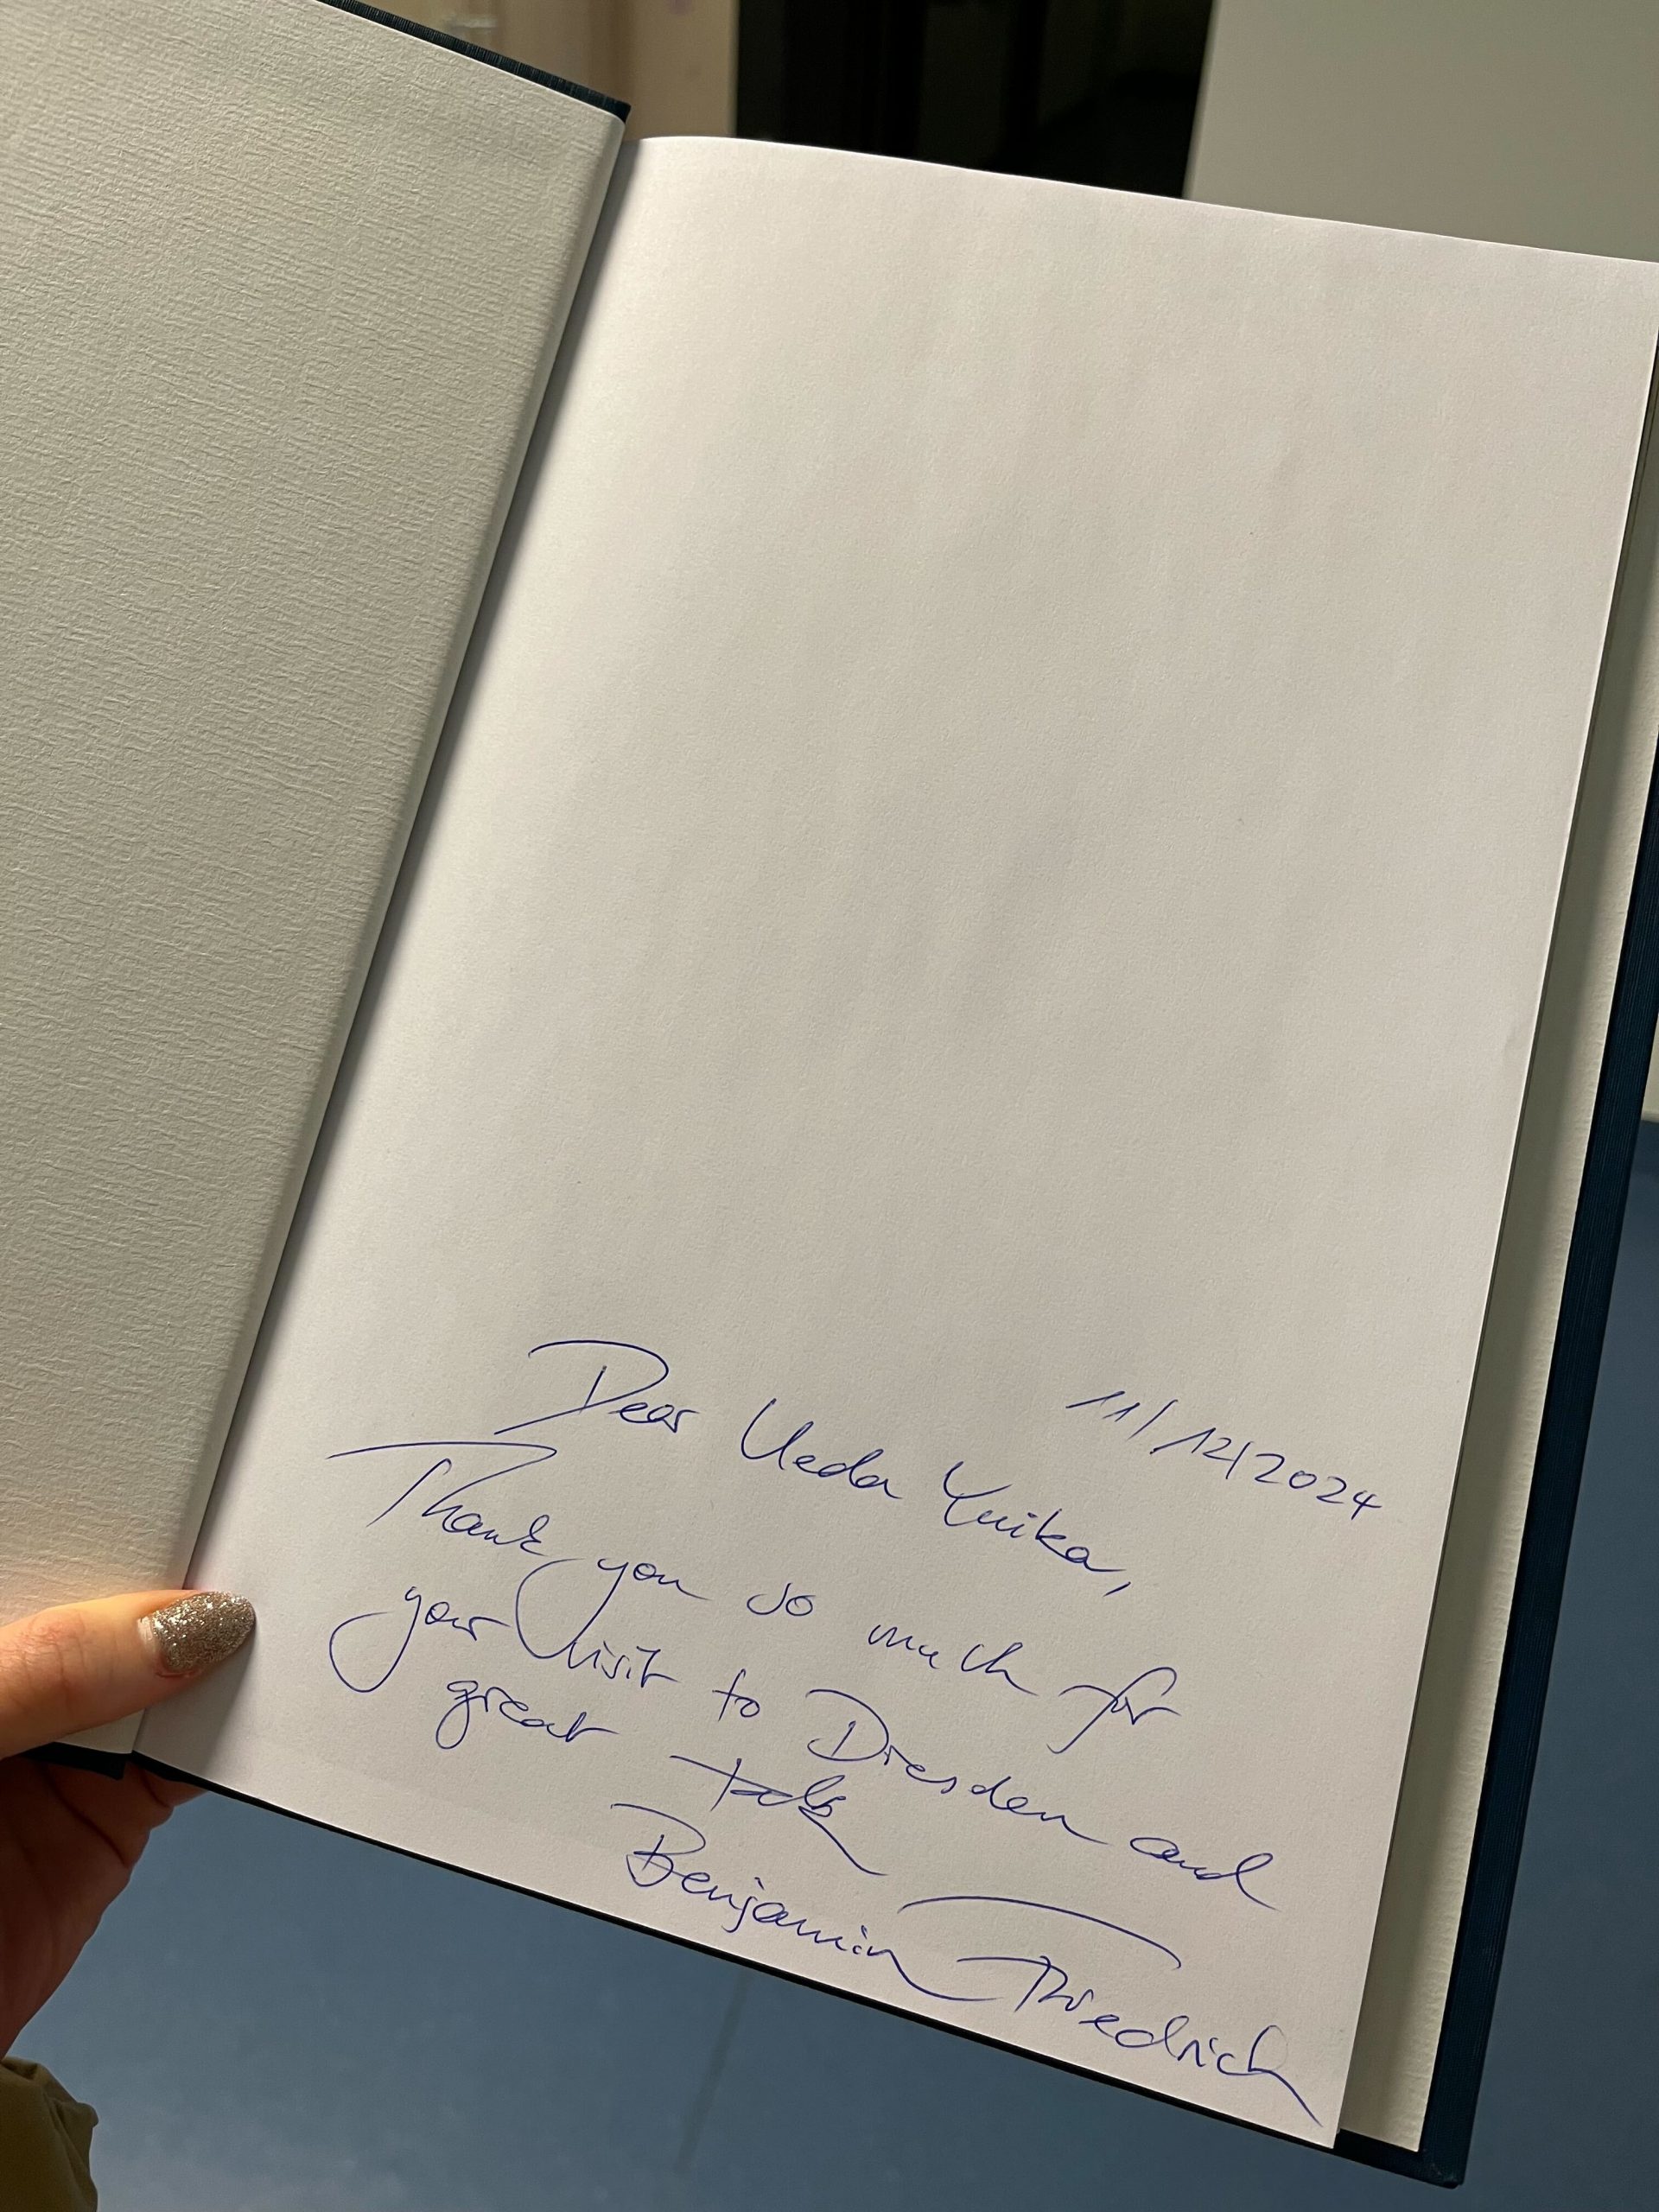 11/12/2024
Dear Ueda Yuika,
Thank you so much for
your visit to Dresden and
great talk
Benjamin Friedrich